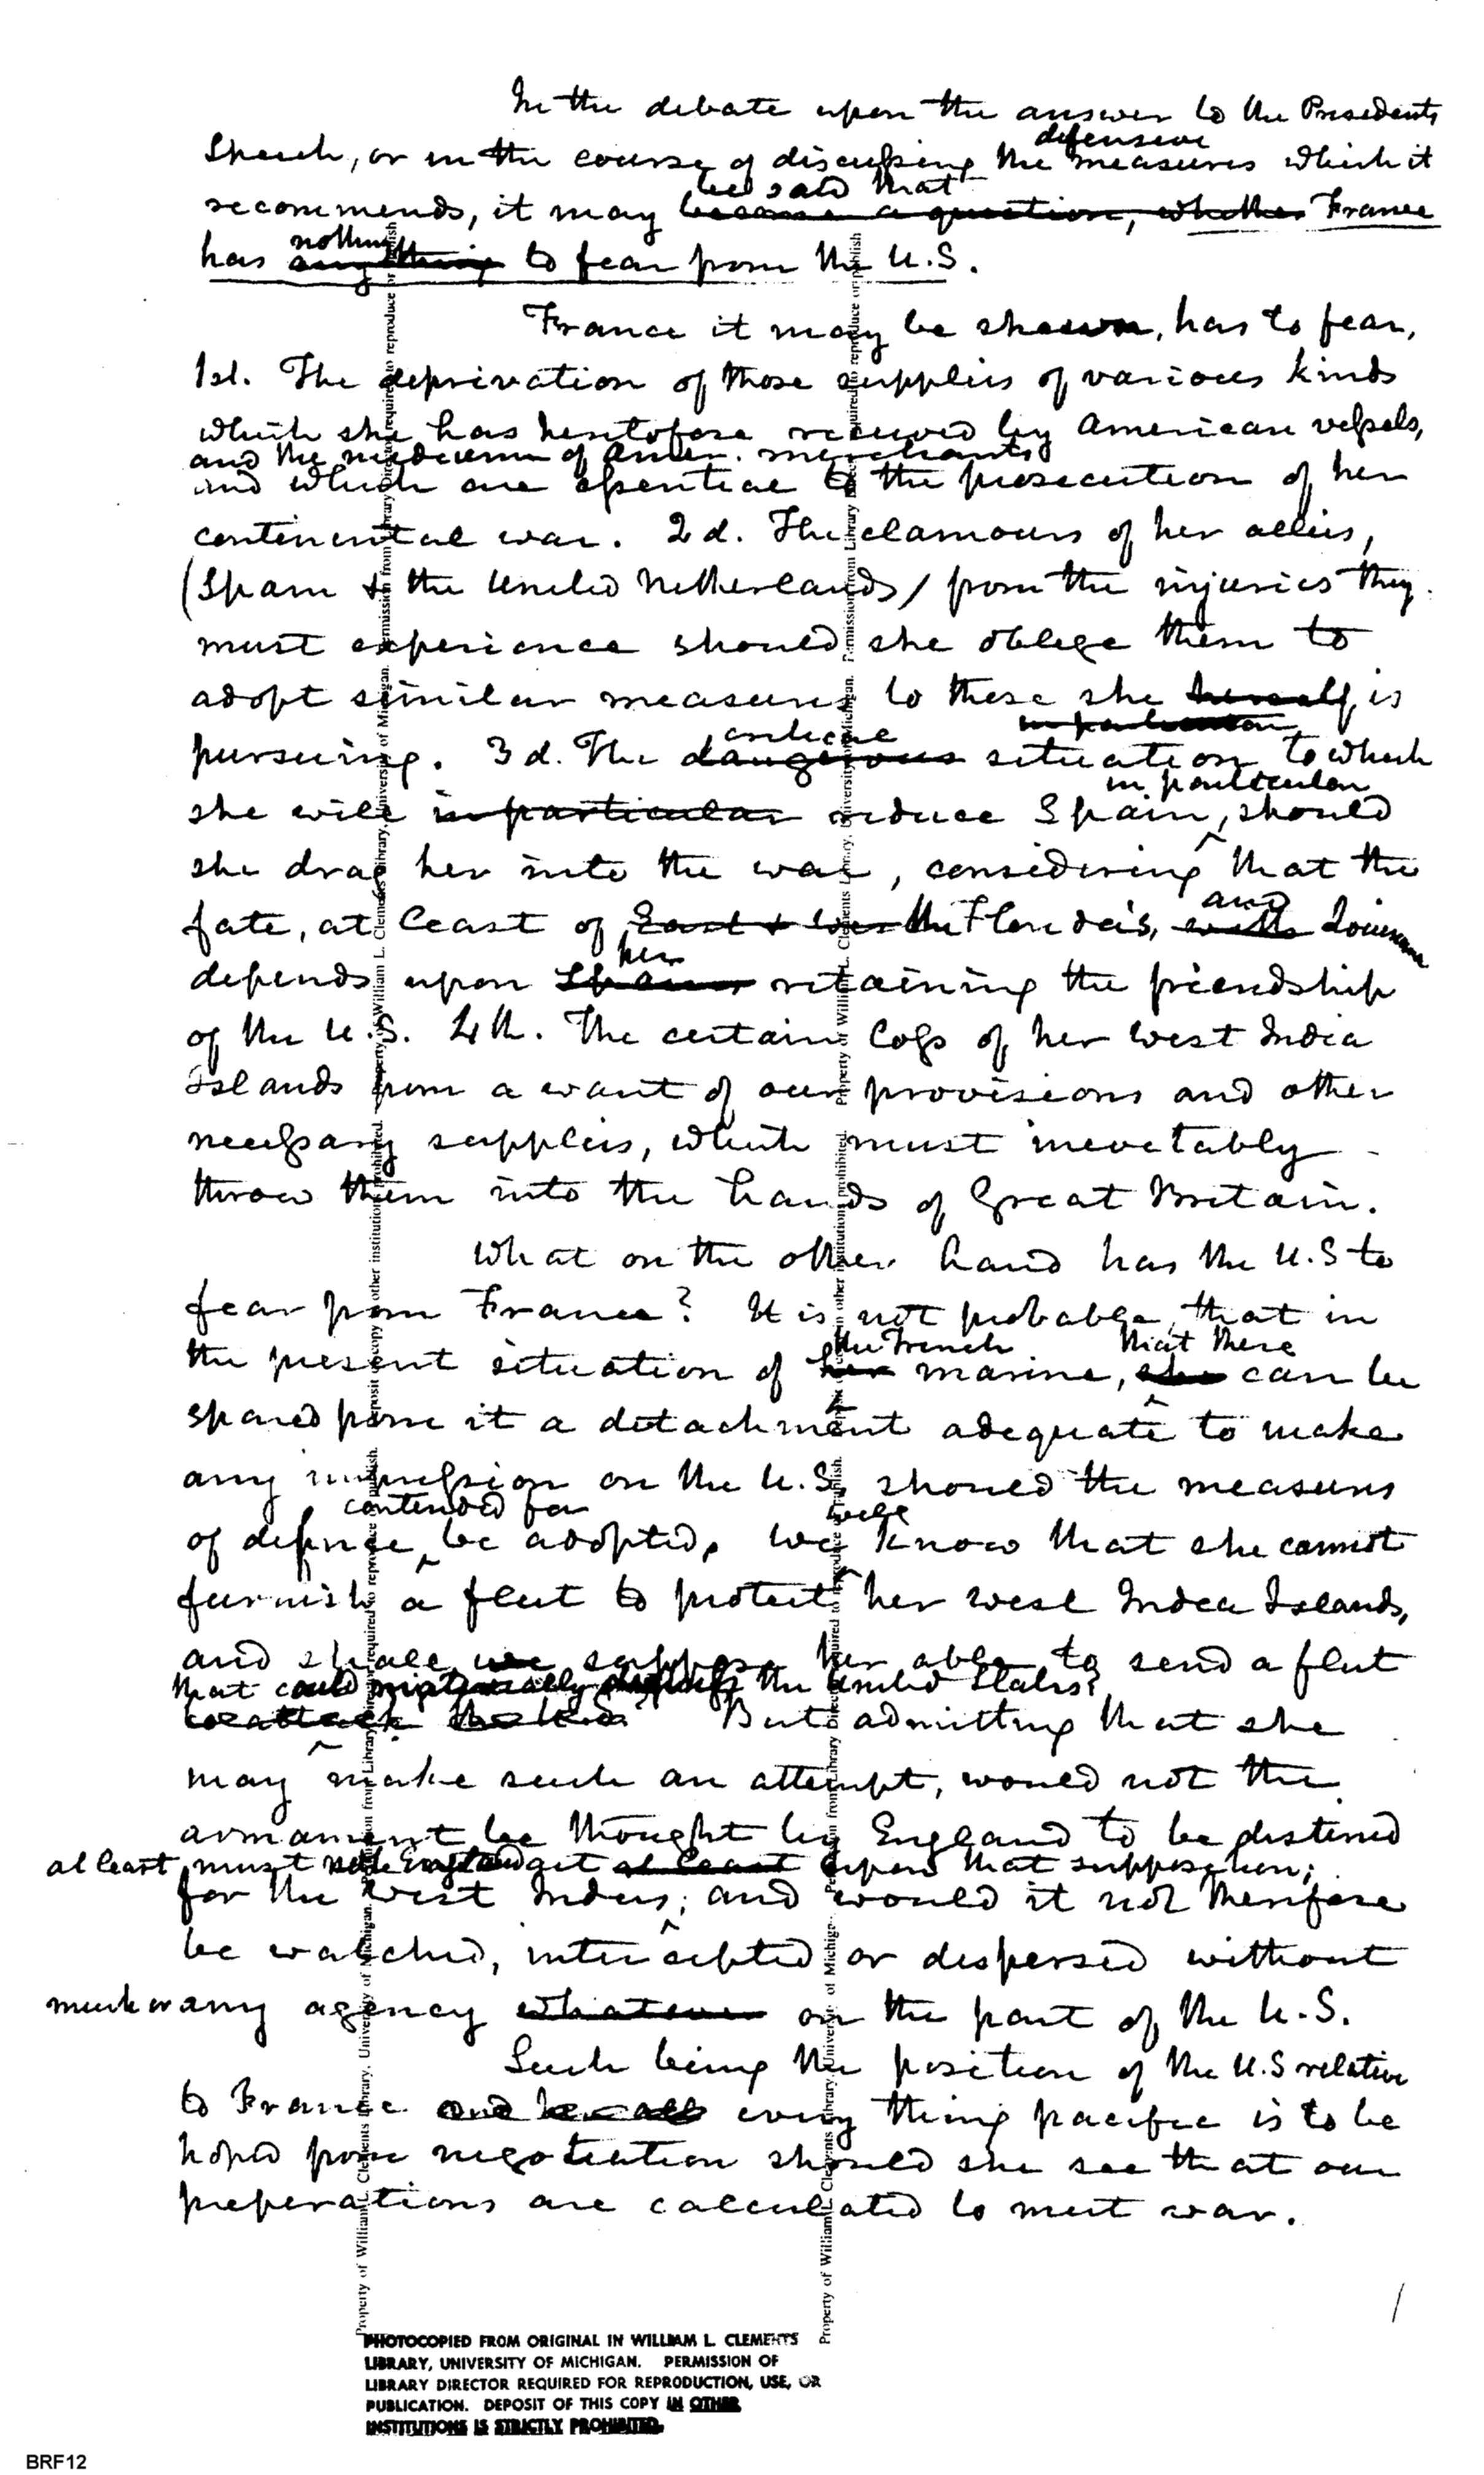 In the debate upon the answer to the Presidents
Speech, or in the course of discussing the defensive measures which it
recommends, it may be said that become a question, whether France
has nothing any thing to fear from the U.S.
France it may be shewn, has to fear,
1st. The deprivation of those supplies of various kinds
which she has heretofore received by American vessels,
and the medium of Amer. merchants
and which are essential to the prosecution of her
continental war. 2d. The clamours of her allies,
(Spain & the United Netherlands) from the injuries they
must experience should she oblege them to
adopt similar measures to these she herself is
pursuing. 3d. The critical dangerous situation in particular to which
she will in particular reduce Spain, in particular should
she drag her into the war, considering that the
fate, at least of East & Wes the Florida's, and with Louisiana
depends upon her Spains retaining the friendship
of the U.S. 4th. The certain loss of her West India
Islands from a want of our provisions and other
necessary supplies, which must inevetably
throw them into the hands of Great Britain.
What on the other hand has the U.S to
fear from France? It is not probable, that in
the present situation of the French her marine, that there she can be
spared from it a detachment adequate to make
any impression on the U.S. should the measures
of defence contended for be adopted, we well know that she cannot
furnish a fleet to protect her west India Islands,
and shall we suppose her able to send a fleet
that could materially the United States?
to attack the U.S. But admitting that she
may make such an attempt, would not the
armament be thought by England to be destined
at least must not England act at least upon that supposition;
for the West Indies; and would it not therefore
be watched, intercepted or dispersed without
much or any agency whatever on the part of the U.S.
Such being the position of the U.S relative
to France and her all every thing pacific is to be
hoped from negotiation should she see that our
preperations are calculated to meet war.
PHOTOCOPIED FROM ORIGINAL IN WILLIAM L. CLEMENTS
LIBRARY, UNIVERSITY OF MICHIGAN. PERMISSION OF
LIBRARY DIRECTOR REQUIRED FOR REPRODUCTION, USE, OR
PUBLICATION. DEPOSIT OF THIS COPY IN OTHER
INSTITUTIONS IS STRICTLY PROHIBITED.
BRF12